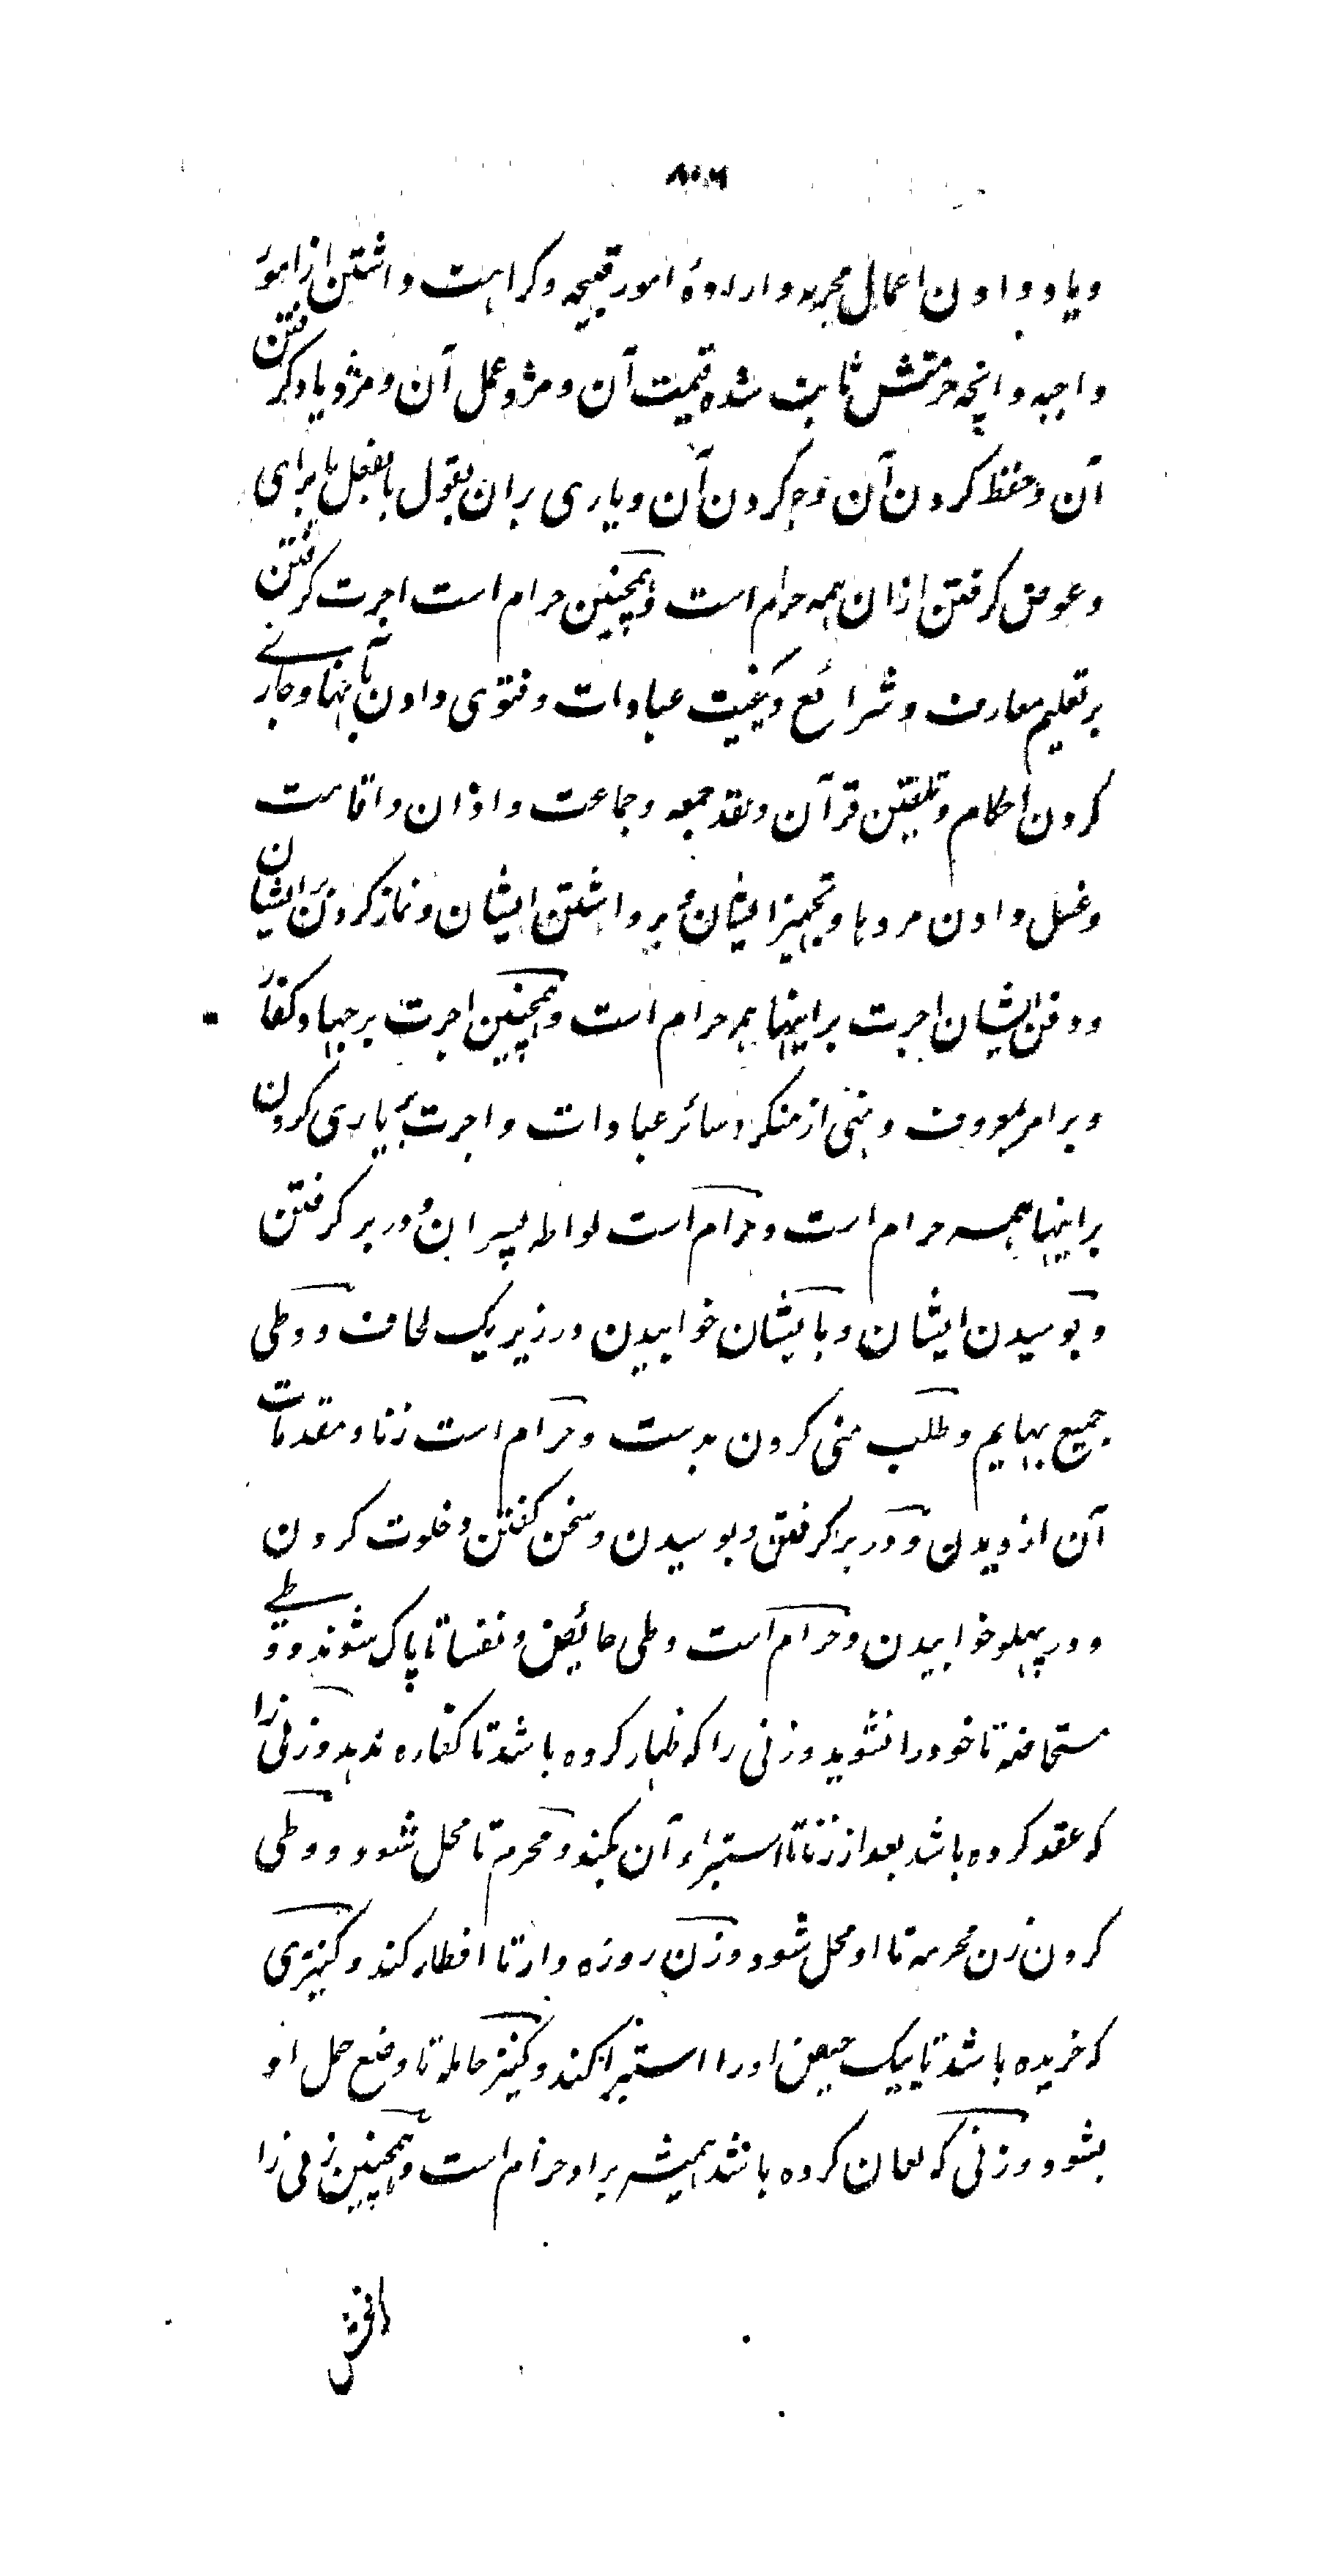 و یاد دادن اعمال محرمه و ارادهٔ امور قبیحه و کراهت داشتن از امور
واجبه و انچه حرمتش ثابت شده قیمت آن و مزد عمل آن و مزد یاد گرفتن
آن و حفظ کردن آن و جمع کردن آن و یاری بران بقول یا بفعل یا برای
و عوض کرفتن ازان همه حرام است و همچنین حرام است اجرت کرفتن
بر تعلیم معارف و شرائع و کیفیت عبادات و فتوی دادن بآنها و جاری
کردن احکام و تلقین قرآن و عقد جمعه و جماعت و اذان و اقامت
و غسل دادن مردها و تجهیز ایشان و برداشتن ایشان و نماز کردن بر ایشان
و دفن ایشان اجرت براینها همه حرام است و همچنین اجرت بر جهاد کفار
و بر امر بمعروف و نهی از منکر و سائر عبادات و اجرت بر یاری کردن
براینها همه حرام است و حرام است لواطه پسران و در بر کرفتن
و بوسیدن ایشان و با یشان خوابیدن در زیر یک لحاف و وطی
جمیع بهایم و طلب منی کردن بدست و حرام است زنا و مقدمات
آن از دیدن و در بر کرفتن و بوسیدن و سخن کفتن و خلوت کردن
و در پهلو خوابیدن و حرام است وطی حائض و نفسا تا پاک شوند و وطی
مستحاضه تا خود را نشوید و زنی را که ظهار کرده باشد تا کفاره ندهد و زنی را
که عقد کرده باشد بعد از زنا تا استبراء آن بکند و محرم تا محل شود و وطی
کردن زن محرمه تا او محل شود و زن روزه دار تا افطار کند و کنیزی
که خریده باشد تا بیک حیض او را استبرا کند و کنیز حامله تا وضع حمل او
بشود و زنی که لعان کرده باشد همیشه بر او حرام است و همچنین زنی را